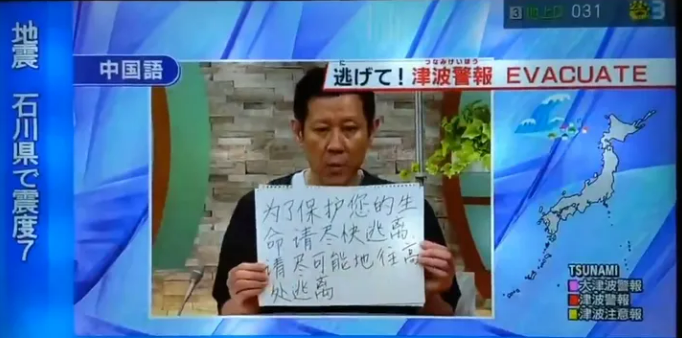 3 地上D 031
3
地震 石川県で震度7
中国語
に つなみけいほう
逃げて！津波警報 EVACUATE
为了保护您的生
命请尽快逃离.
请尽可能地往高
处逃离
TSUNAMI
大津波警報
津波警報
津波注意報